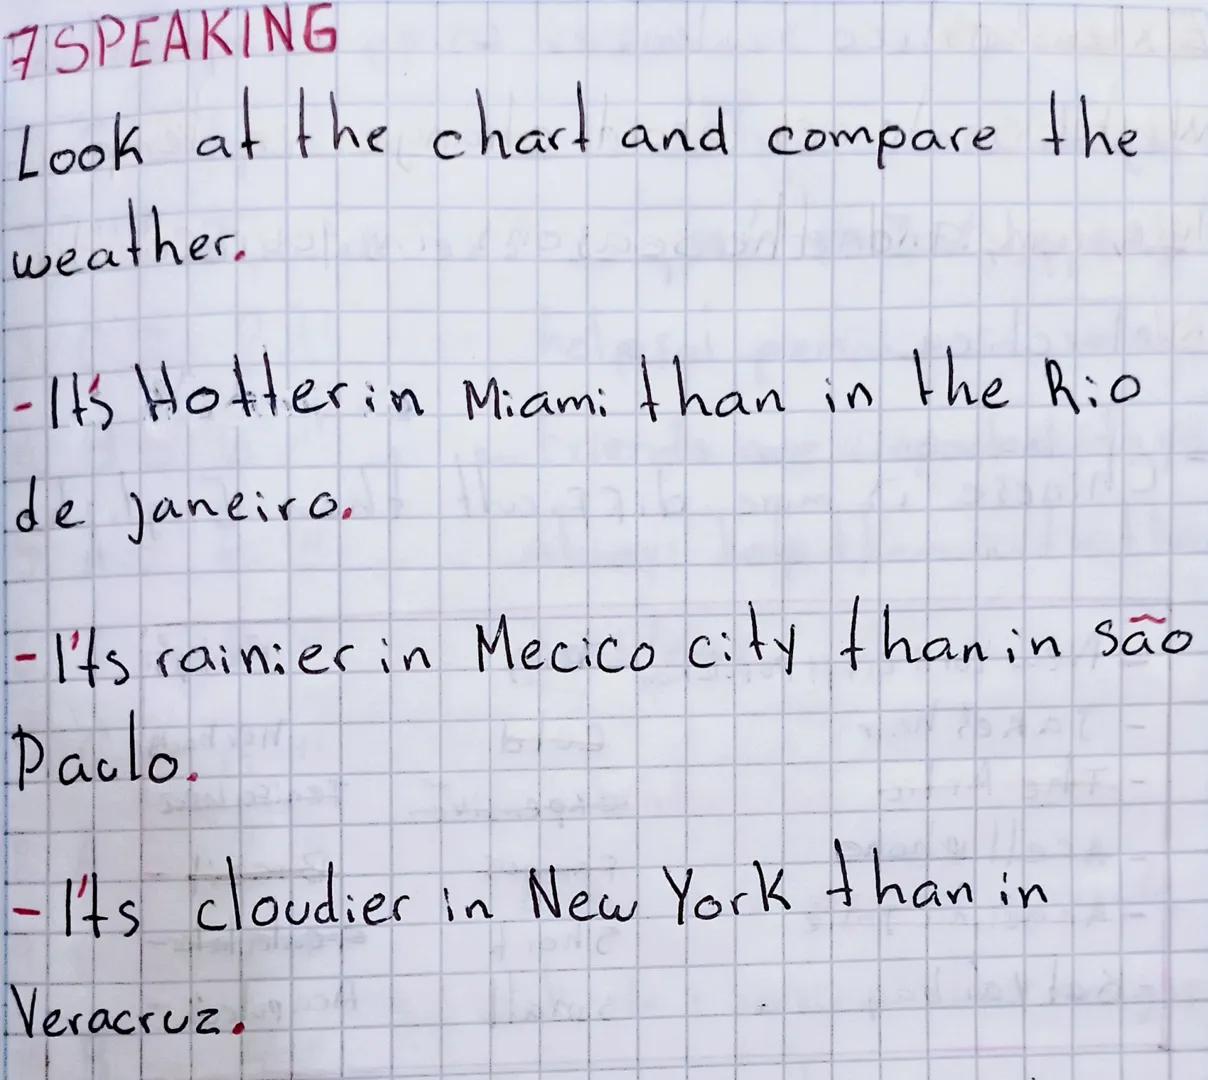 7 SPEAKING
Look at the chart and compare the
weather.
- It's Hotter in Miami than in the Rio
de janeiro.
- I'ts rainier in Mecico city than in são
Paulo.
- I'ts cloudier in New York than in
Veracruz.